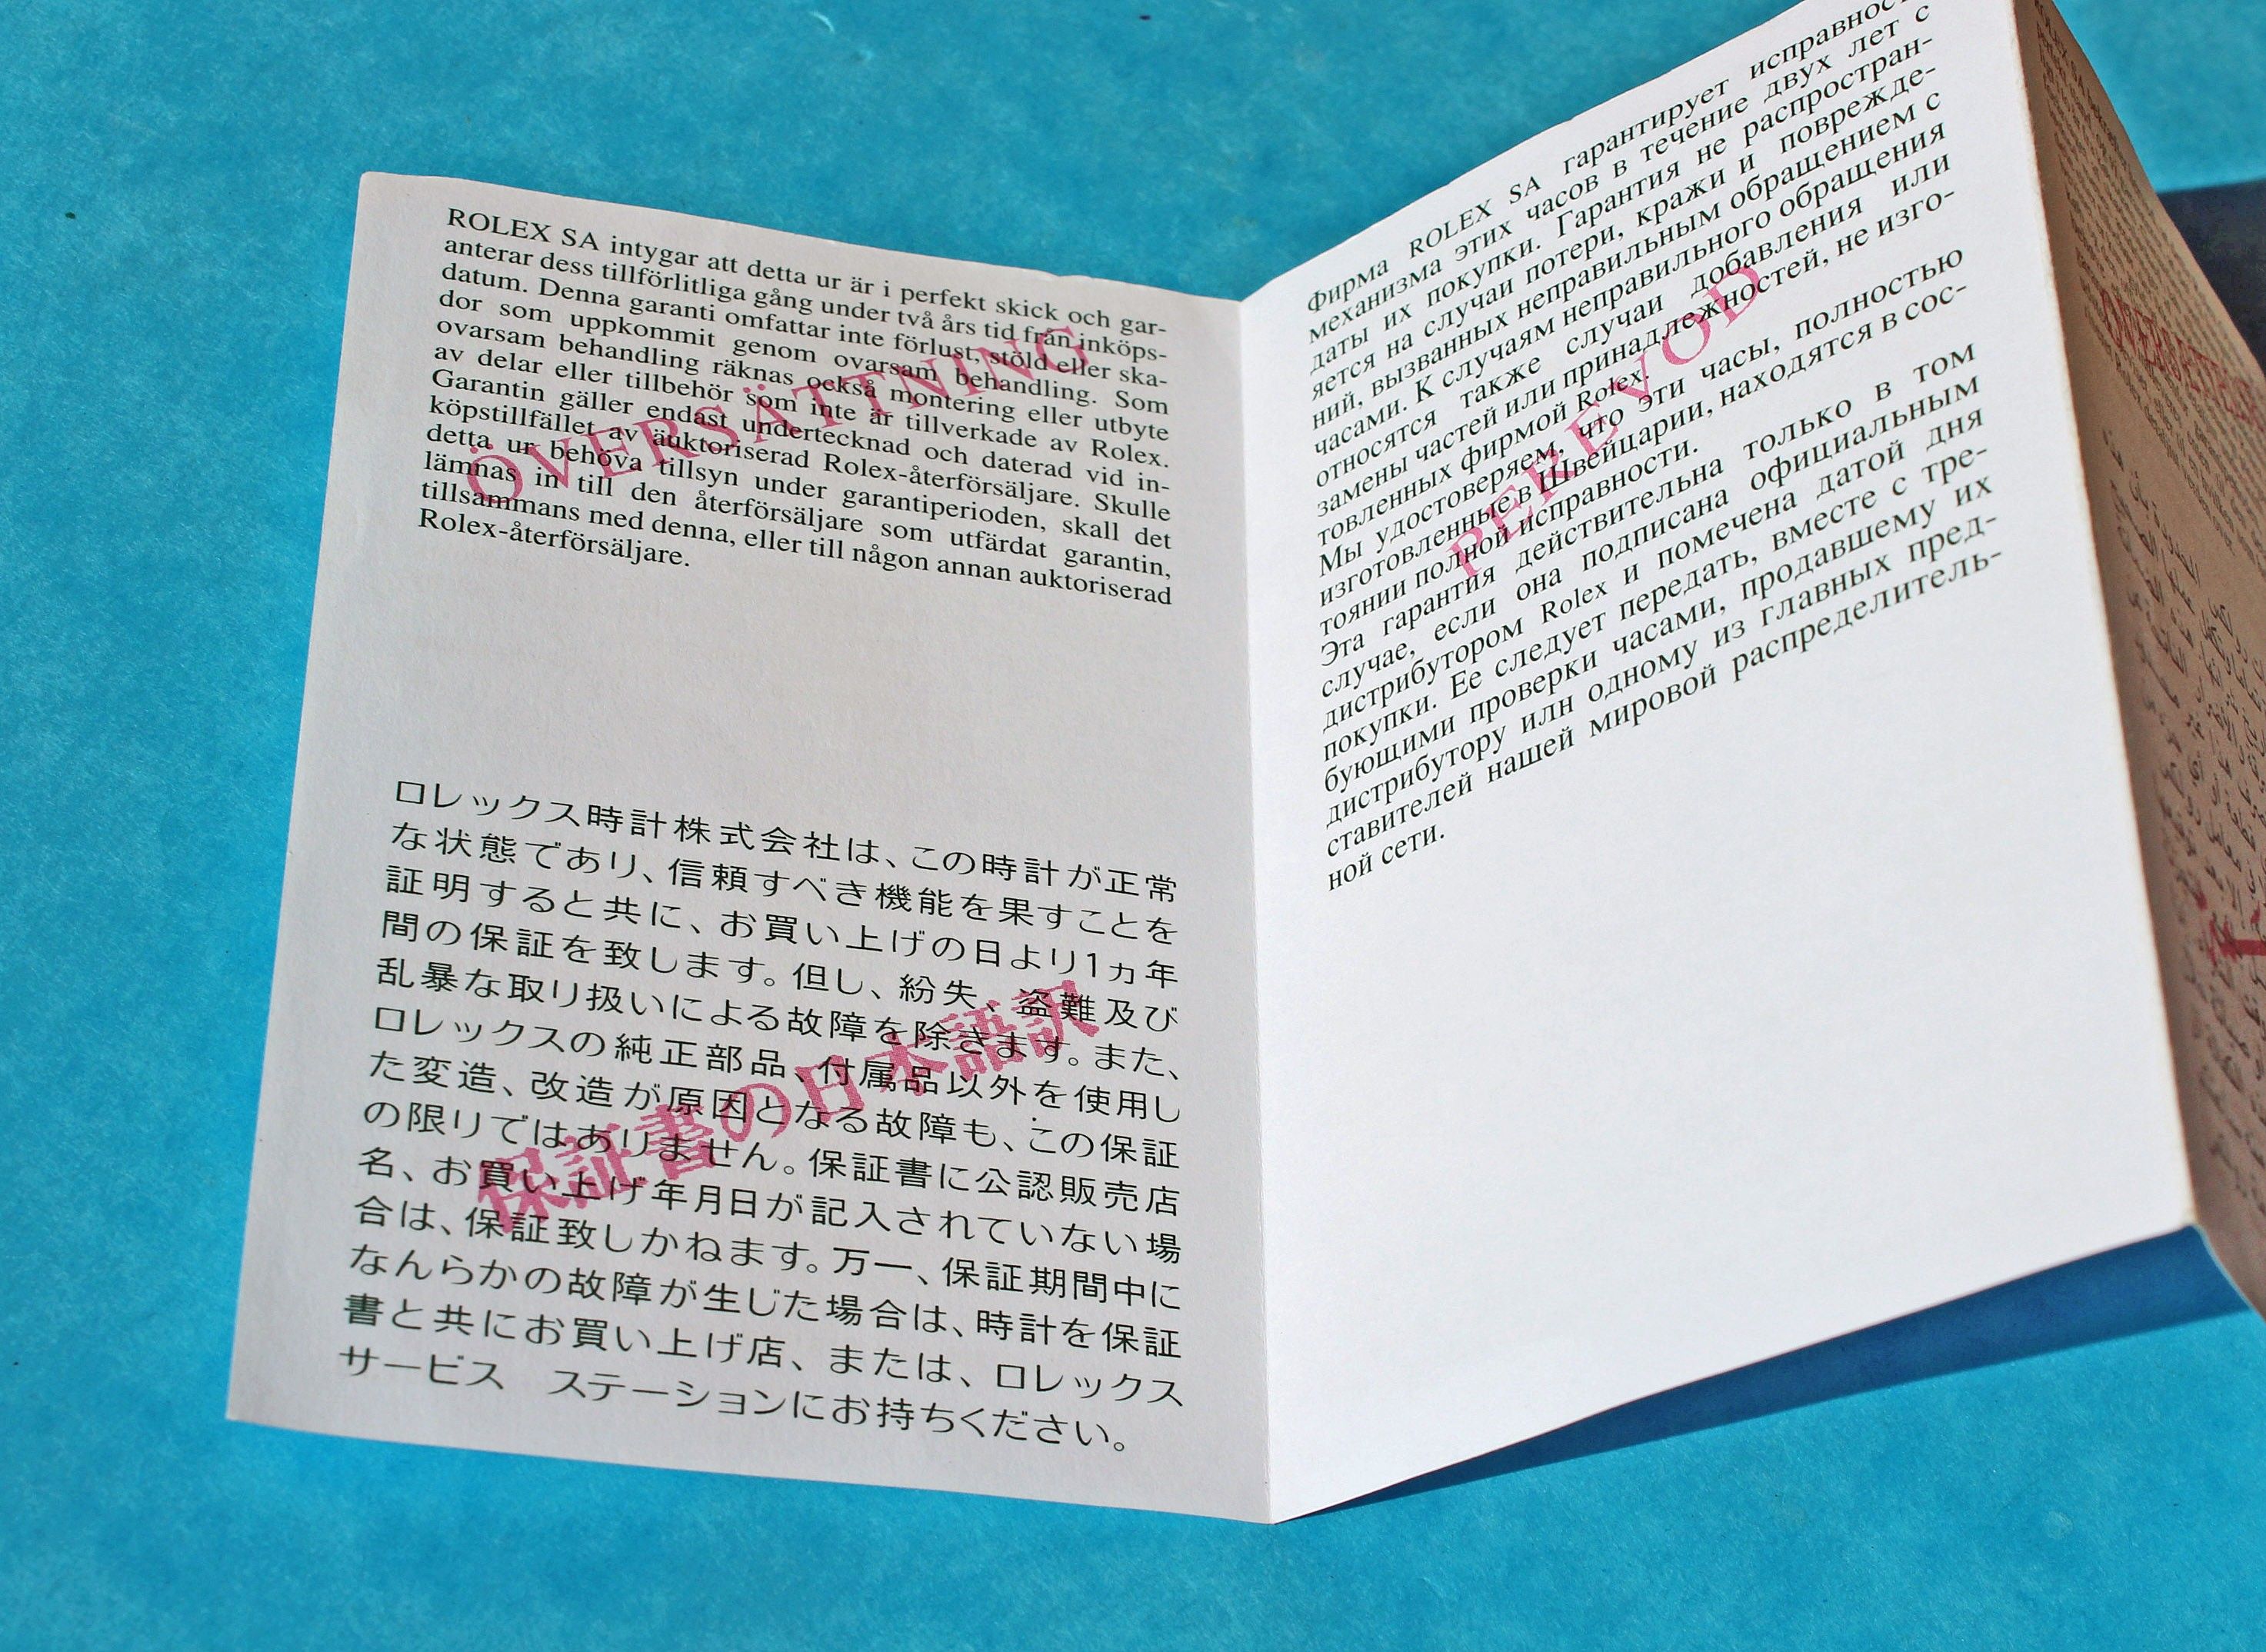 ROLEX SA intygar att detta ur är i perfekt skick och gar-
anterar dess tillförlitliga gång under två års tid från inköps-
datum. Denna garanti omfattar inte förlust, stöld eller ska-
dor som uppkommit genom ovarsam behandling. Som
ovarsam behandling räknas också montering eller utbyte
av delar eller tillbehör som inte är tillverkade av Rolex.
Garantin gäller endast undertecknad och daterad vid in-
köpstillfället av auktoriserad Rolex-återförsäljare. Skulle
detta ur behöva tillsyn under garantiperioden, skall det
lämnas in till den återförsäljare som utfärdat garantin,
tillsammans med denna, eller till någon annan auktoriserad
Rolex-återförsäljare.
ÖVERSÄTTNING
ロレックス時計株式会社は、この時計が正常
な状態であり、信頼すべき機能を果すことを
証明すると共に、お買い上げの日より1ヵ年
間の保証を致します。但し、紛失、盗難及び
乱暴な取り扱いによる故障を除きます。また、
ロレックスの純正部品、付属品以外を使用し
た変造、改造が原因となる故障も、この保証
の限りではありません。保証書に公認販売店
名、お買い上げ年月日が記入されていない場
合は、保証致しかねます。万一、保証期間中に
なんらかの故障が生じた場合は、時計を保証
書と共にお買い上げ店、または、ロレックス
サービス　ステーションにお持ちください。
保証書の日本語訳
Фирма ROLEX SA гарантирует
механизма этих часов в течение двух лет с
даты их покупки. Гарантия не распростран-
яется на случаи потери, кражи и поврежде-
ний, вызванных неправильным обращением с
часами. К случаям неправильного обращения
относятся также случаи добавления или
замены частей или принадлежностей, не изго-
товленных фирмой Rolex.
Мы удостоверяем, что эти часы, полностью
изготовленные в Швейцарии, находятся в сос-
тоянии полной исправности.
Эта гарантия действительна только в том
случае, если она подписана официальным
дистрибутором Rolex и помечена датой дня
покупки. Ее следует передать, вместе с тре-
бующими проверки часами, продавшему их
дистрибутору илн одному из главных пред-
ставителей нашей мировой распределитель-
ной сети.
PEREVOD